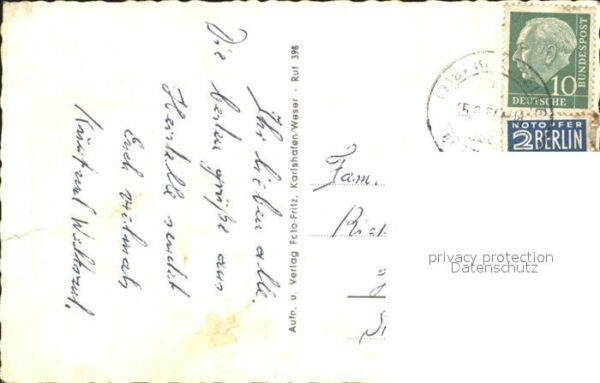 Ihr lieben alle.
Die besten Grüße aus
Herstelle sendet
Euch vielmals
Aufn. u. Verlag Foto-Fritz, Karlshafen/Weser · Ruf 398
Fam.
DEUTSCHE
BUNDESPOST
10
NOTOPFER
2 BERLIN
privacy protection
Datenschutz